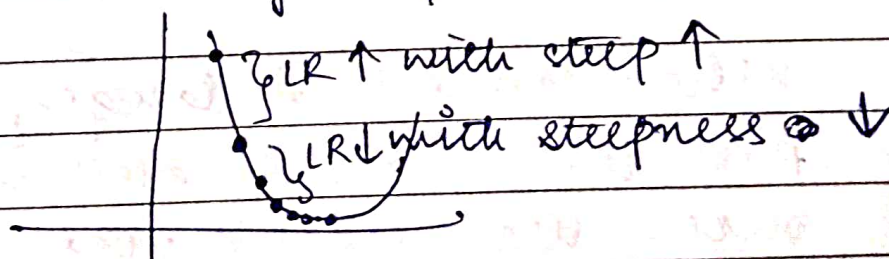 LR ↑ with steep ↑
LR ↓ with steepness ↓